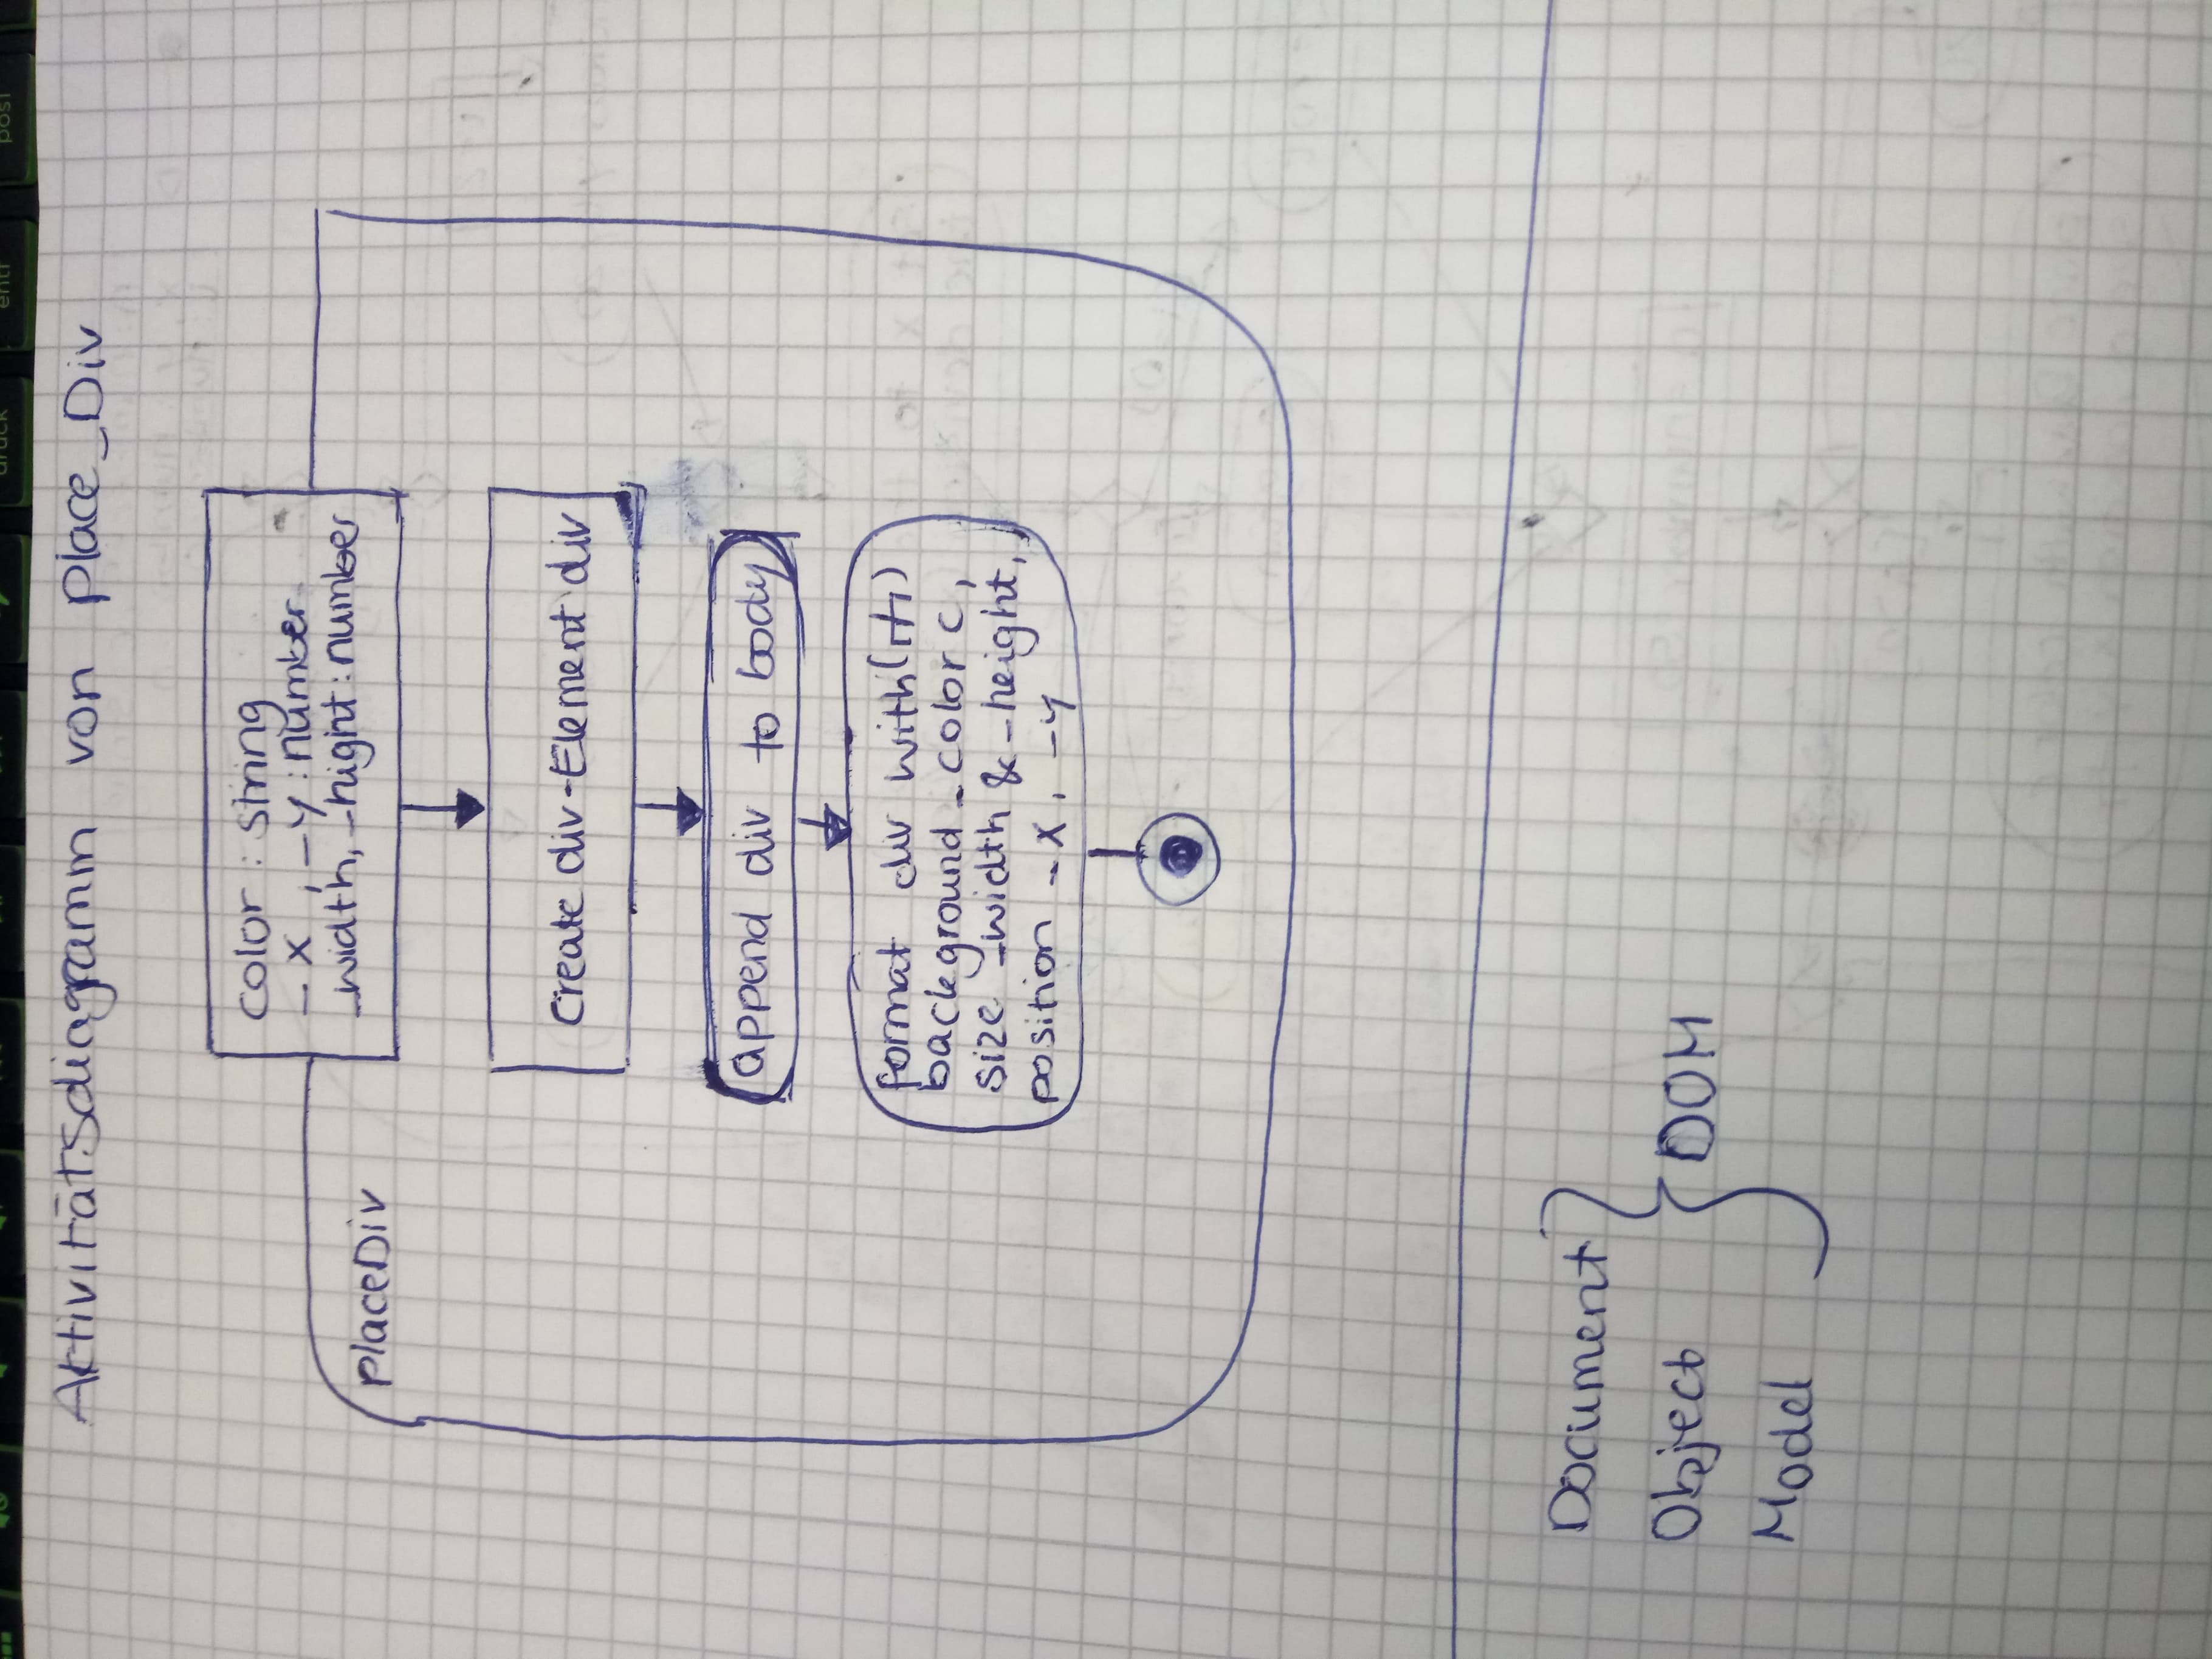 Aktivitätsdiagramm von place_Div
color : string
_x, _y : number
_width, _hight : number
placeDiv
Create div-Element div
append div to body
format div with
background _color c,
size _width & _height,
position _x, _y
Document
Object
Model
DOM